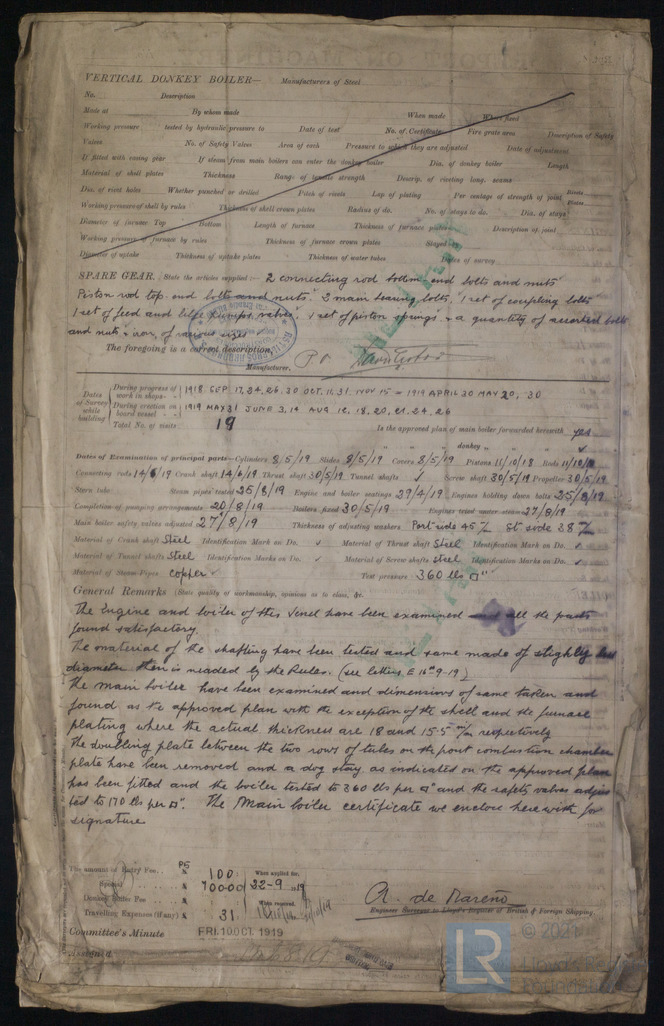 VERTICAL DONKEY BOILER— Manufacturers of Steel
No. Description
Made at By whom made When made Where fixed
Working pressure tested by hydraulic pressure to Date of test No. of Certificate Fire grate area Description of Safety
Valves No. of Safety Valves Area of each Pressure to which they are adjusted Date of adjustment
If fitted with casing gear If steam from main boilers can enter the donkey boiler Dia. of donkey boiler Length
Material of shell plates Thickness Range of tensile strength Descrip. of riveting long. seams
Dia. of rivet holes Whether punched or drilled Pitch of rivets Lap of plating Per centage of strength of joint Rivets Plates
Working pressure of shell by rules Thickness of shell crown plates Radius of do. No. of stays to do. Dia. of stays
Diameter of furnace Top Bottom Length of furnace Thickness of furnace plates Description of joint
Working pressure of furnace by rules Thickness of furnace crown plates Stayed by
Diameter of uptake Thickness of uptake plates Thickness of water tubes Dates of survey
SPARE GEAR. State the articles supplied:— 2 connecting rod bottom end bolts and nuts
Piston rod top end bolts and nuts. 2 main bearing bolts, 1 set of coupling bolts
1 set of feed and bilge pumps valves. 1 set of piston springs. a quantity of assorted bolts
and nuts. iron of various sizes
The foregoing is a correct description,
Manufacturer.
Dates of Survey while building
During progress of work in shops - - 1918 SEP. 17, 24, 26, 30 OCT. 11, 31 NOV 15 = 1919 APRIL 30 MAY 20, 30
During erection on board vessel - - 1919 MAY 31 JUNE 3, 14 AUG 12, 18, 20, 21, 24, 26
Total No. of visits 19 Is the approved plan of main boiler forwarded herewith yes
" " " donkey " " "
Dates of Examination of principal parts—Cylinders 8/5/19 Slides 8/5/19 Covers 8/5/19 Pistons 11/10/18 Rods 11/10/18
Connecting rods 14/6/19 Crank shaft 14/6/19 Thrust shaft 30/5/19 Tunnel shafts ✓ Screw shaft 30/5/19 Propeller 30/5/19
Stern tube Steam pipes tested 26/8/19 Engine and boiler seatings 29/4/19 Engines holding down bolts 25/8/19
Completion of pumping arrangements 20/8/19 Boilers fixed 30/5/19 Engines tried under steam 27/8/19
Main boiler safety valves adjusted 27/8/19 Thickness of adjusting washers Port side 45 m/m St side 38 m/m
Material of Crank shaft Steel Identification Mark on Do. ✓ Material of Thrust shaft Steel Identification Mark on Do. ✓
Material of Tunnel shafts Steel Identification Marks on Do. ✓ Material of Screw shafts Steel Identification Marks on Do. ✓
Material of Steam Pipes copper ✓ Test pressure 360 lbs □"
General Remarks (State quality of workmanship, opinions as to class, &c.
The Engine and boiler of this Vessel have been examined and all the parts
found satisfactory.
The material of the shafting have been tested and same made of slightly less
diameter than is needed by the Rules. (see letters E 16th 9-19)
The main boiler have been examined and dimensions of same taken and
found as the approved plan with the exception of the shell and the furnace
plating where the actual thickness are 18 and 15.5 m/m respectively
The doubling plate between the two rows of tubes on the port combustion chamber
plate have been removed and a dog stay as indicated on the approved plan
has been fitted and the boiler tested to 360 lbs per □" and the safety valves adjus-
ted to 170 lbs per □". The Main boiler certificate we enclose herewith for
signature
The amount of Entry Fee PS 100 When applied for,
Special 700.00 22-9 19
Donkey Boiler Fee When received,
Travelling Expenses (if any) £ 31
R. de Mareño
Engineer Surveyor to Lloyd's Register of British & Foreign Shipping.
Committee's Minute FRI. 10 OCT. 1919
Assigned
© 2021
LR Lloyd's Register
Foundation